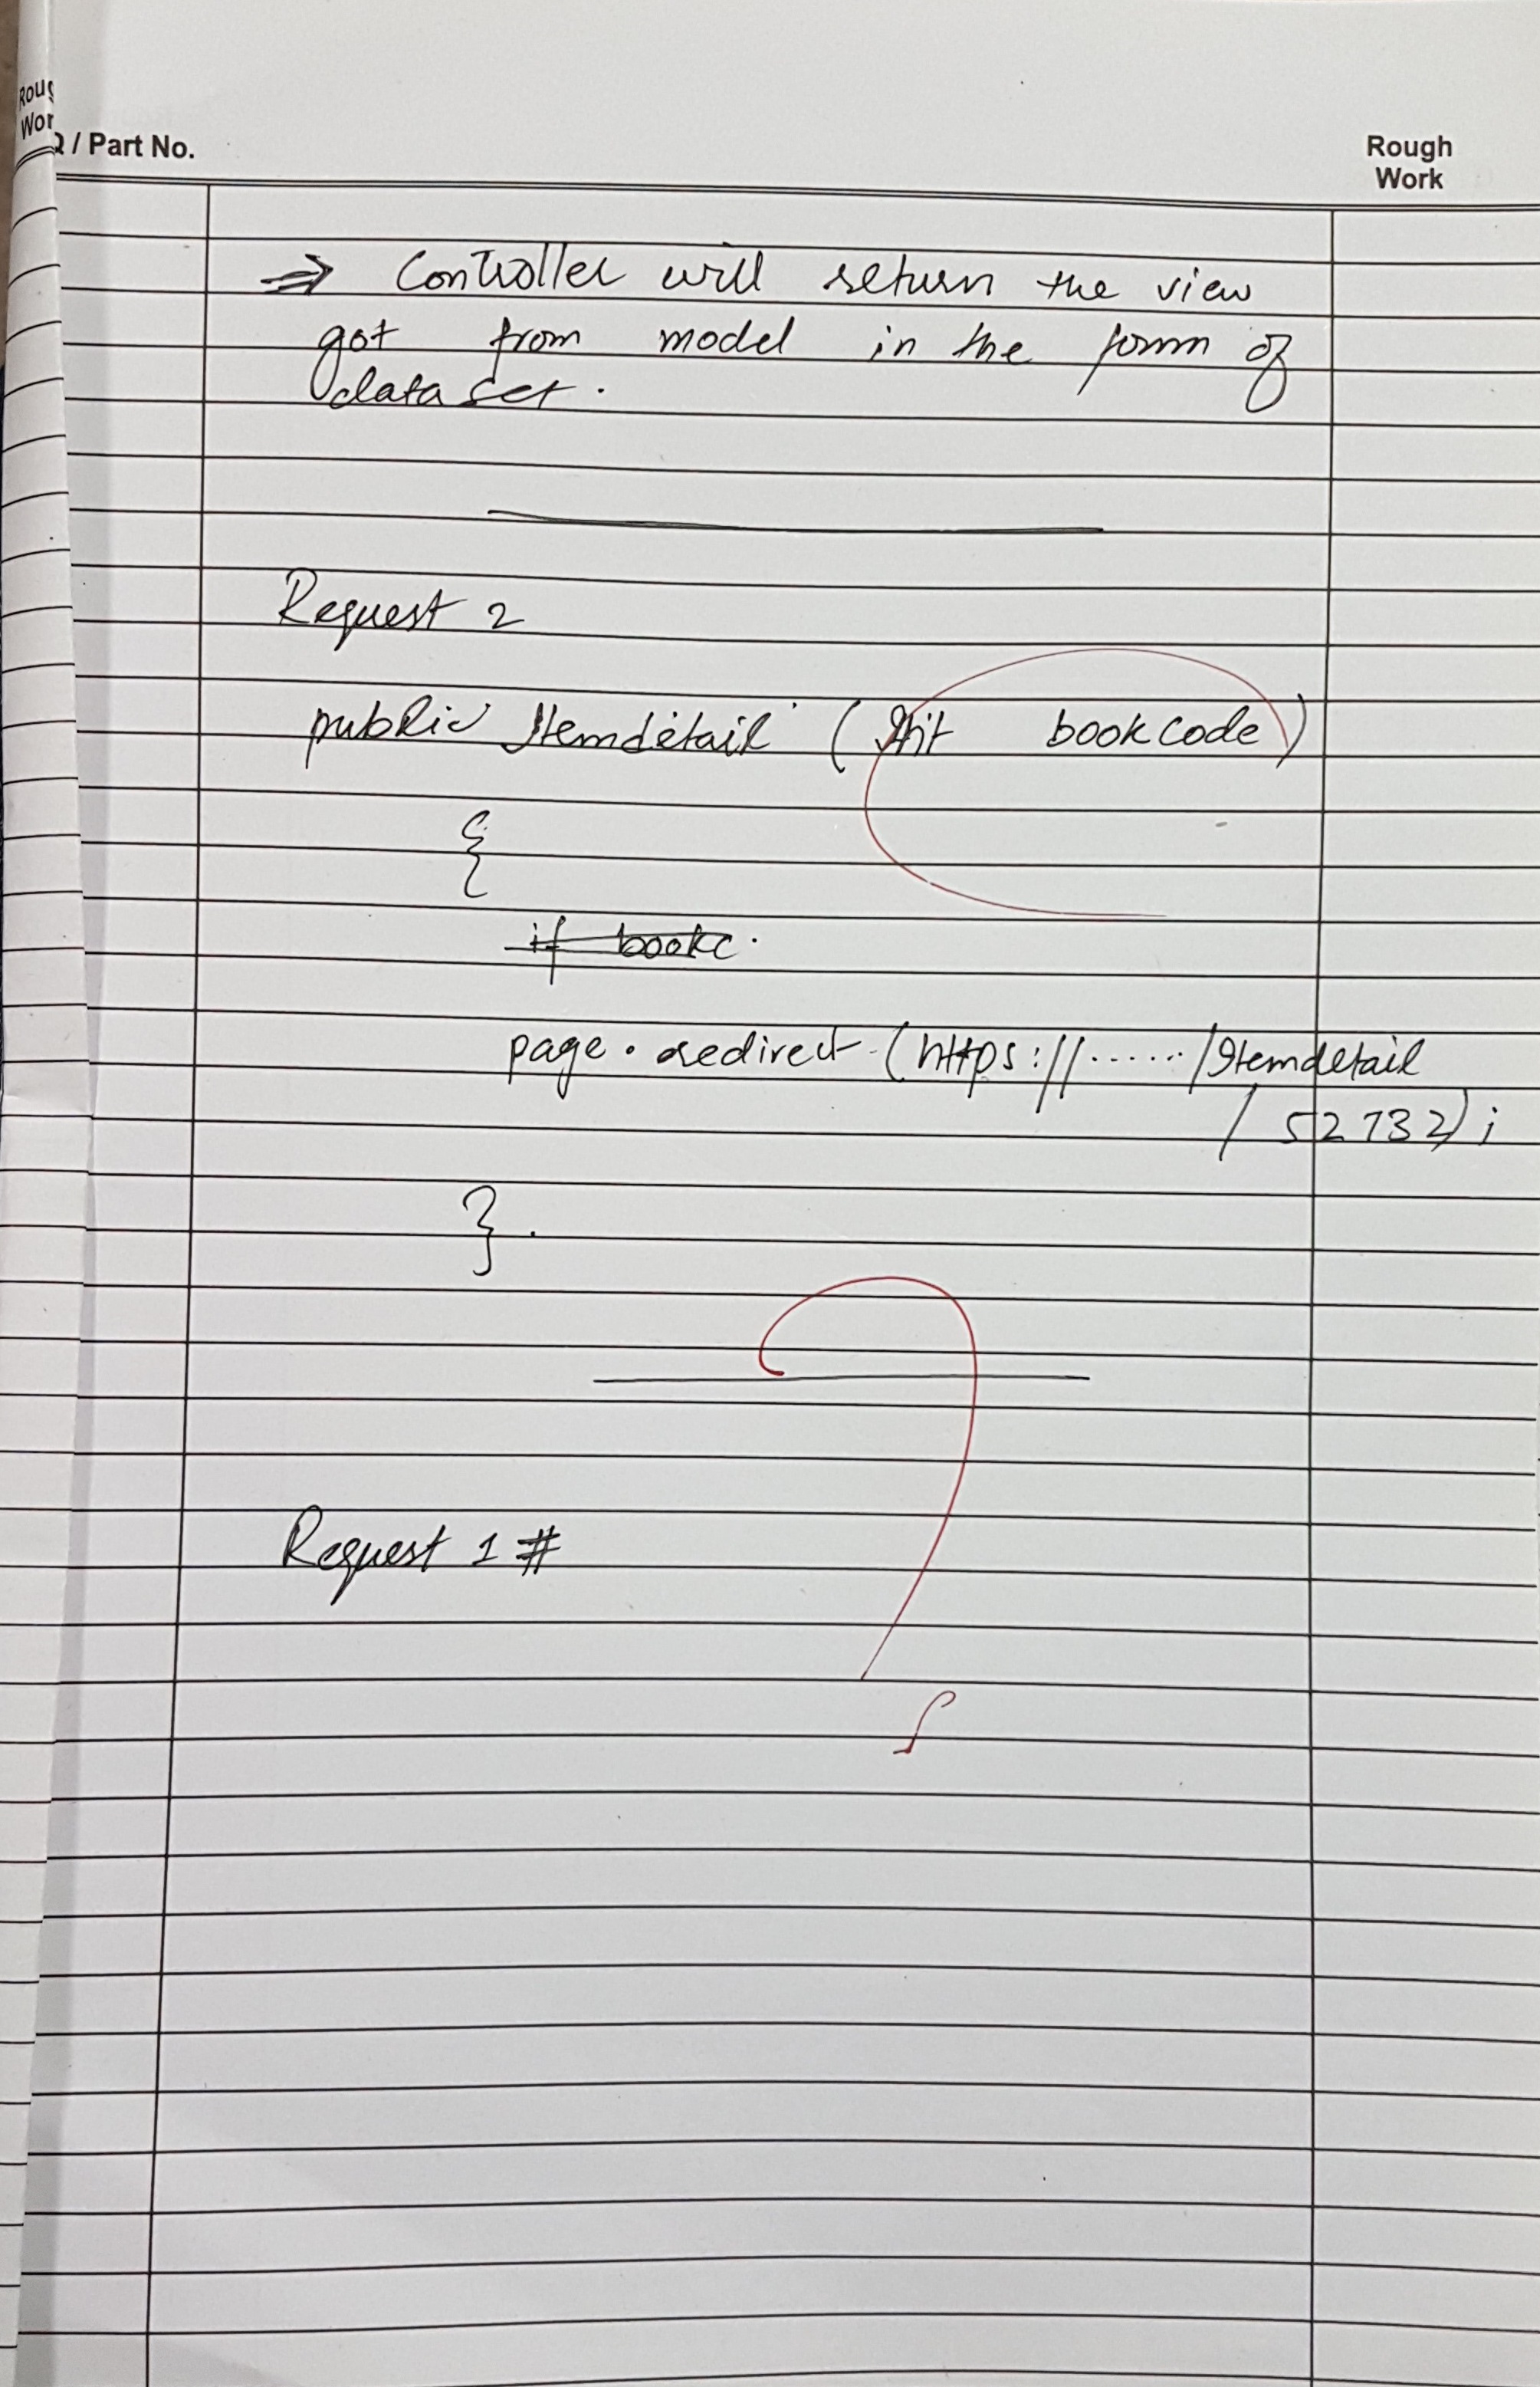 Roug
Wor
Q / Part No.
Rough
Work
⇒ Controller will return the view
got from model in the form of
dataset.
Request 2
public Itemdetail (Int bookcode)
{
if bookc.
page.redirect (https://....../Itemdetail
/ 52732);
}.
Request 1 #